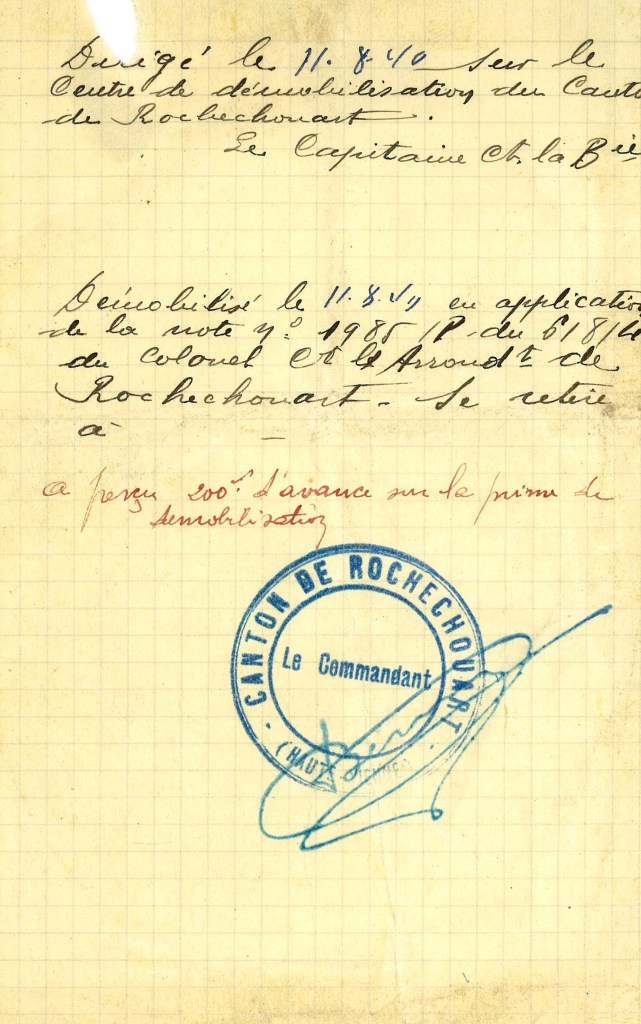 Dirigé le 11.8.40 sur le
Centre de démobilisation du Canto
de Rochechouart.
Le Capitaine Ct la Bie
Démobilisé le 11.8.40 en application
de la note n° 1985 /P. du 6/8/4
du Colonel Ct l'Arrondt de
Rochechouart - Se retire
à -
a perçu 200f d'avance sur la prime de
démobilisation
CANTON DE ROCHECHOUART
Le Commandant
(HAUTE-VIENNE)